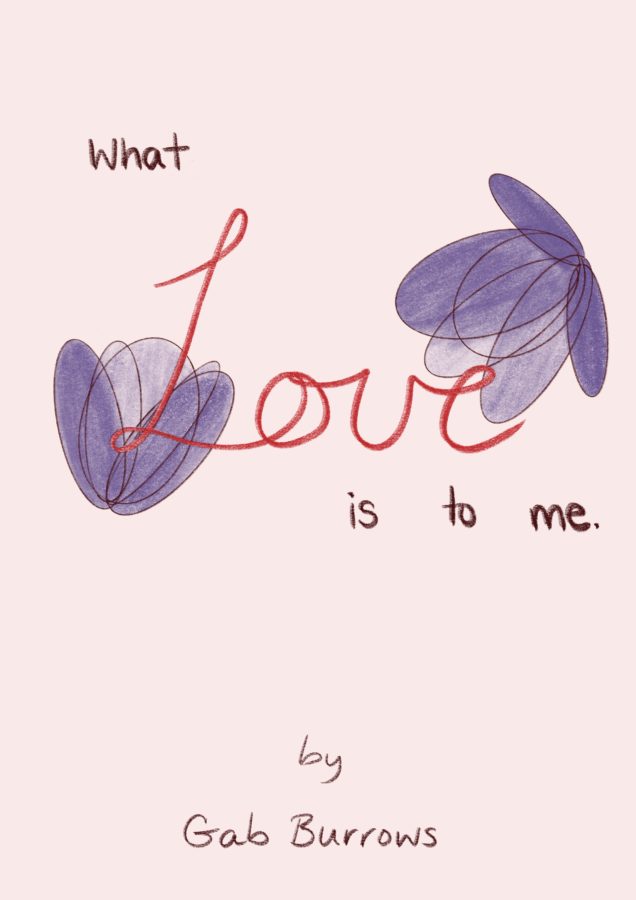 What
Love
is to me.
by
Gab Burrows